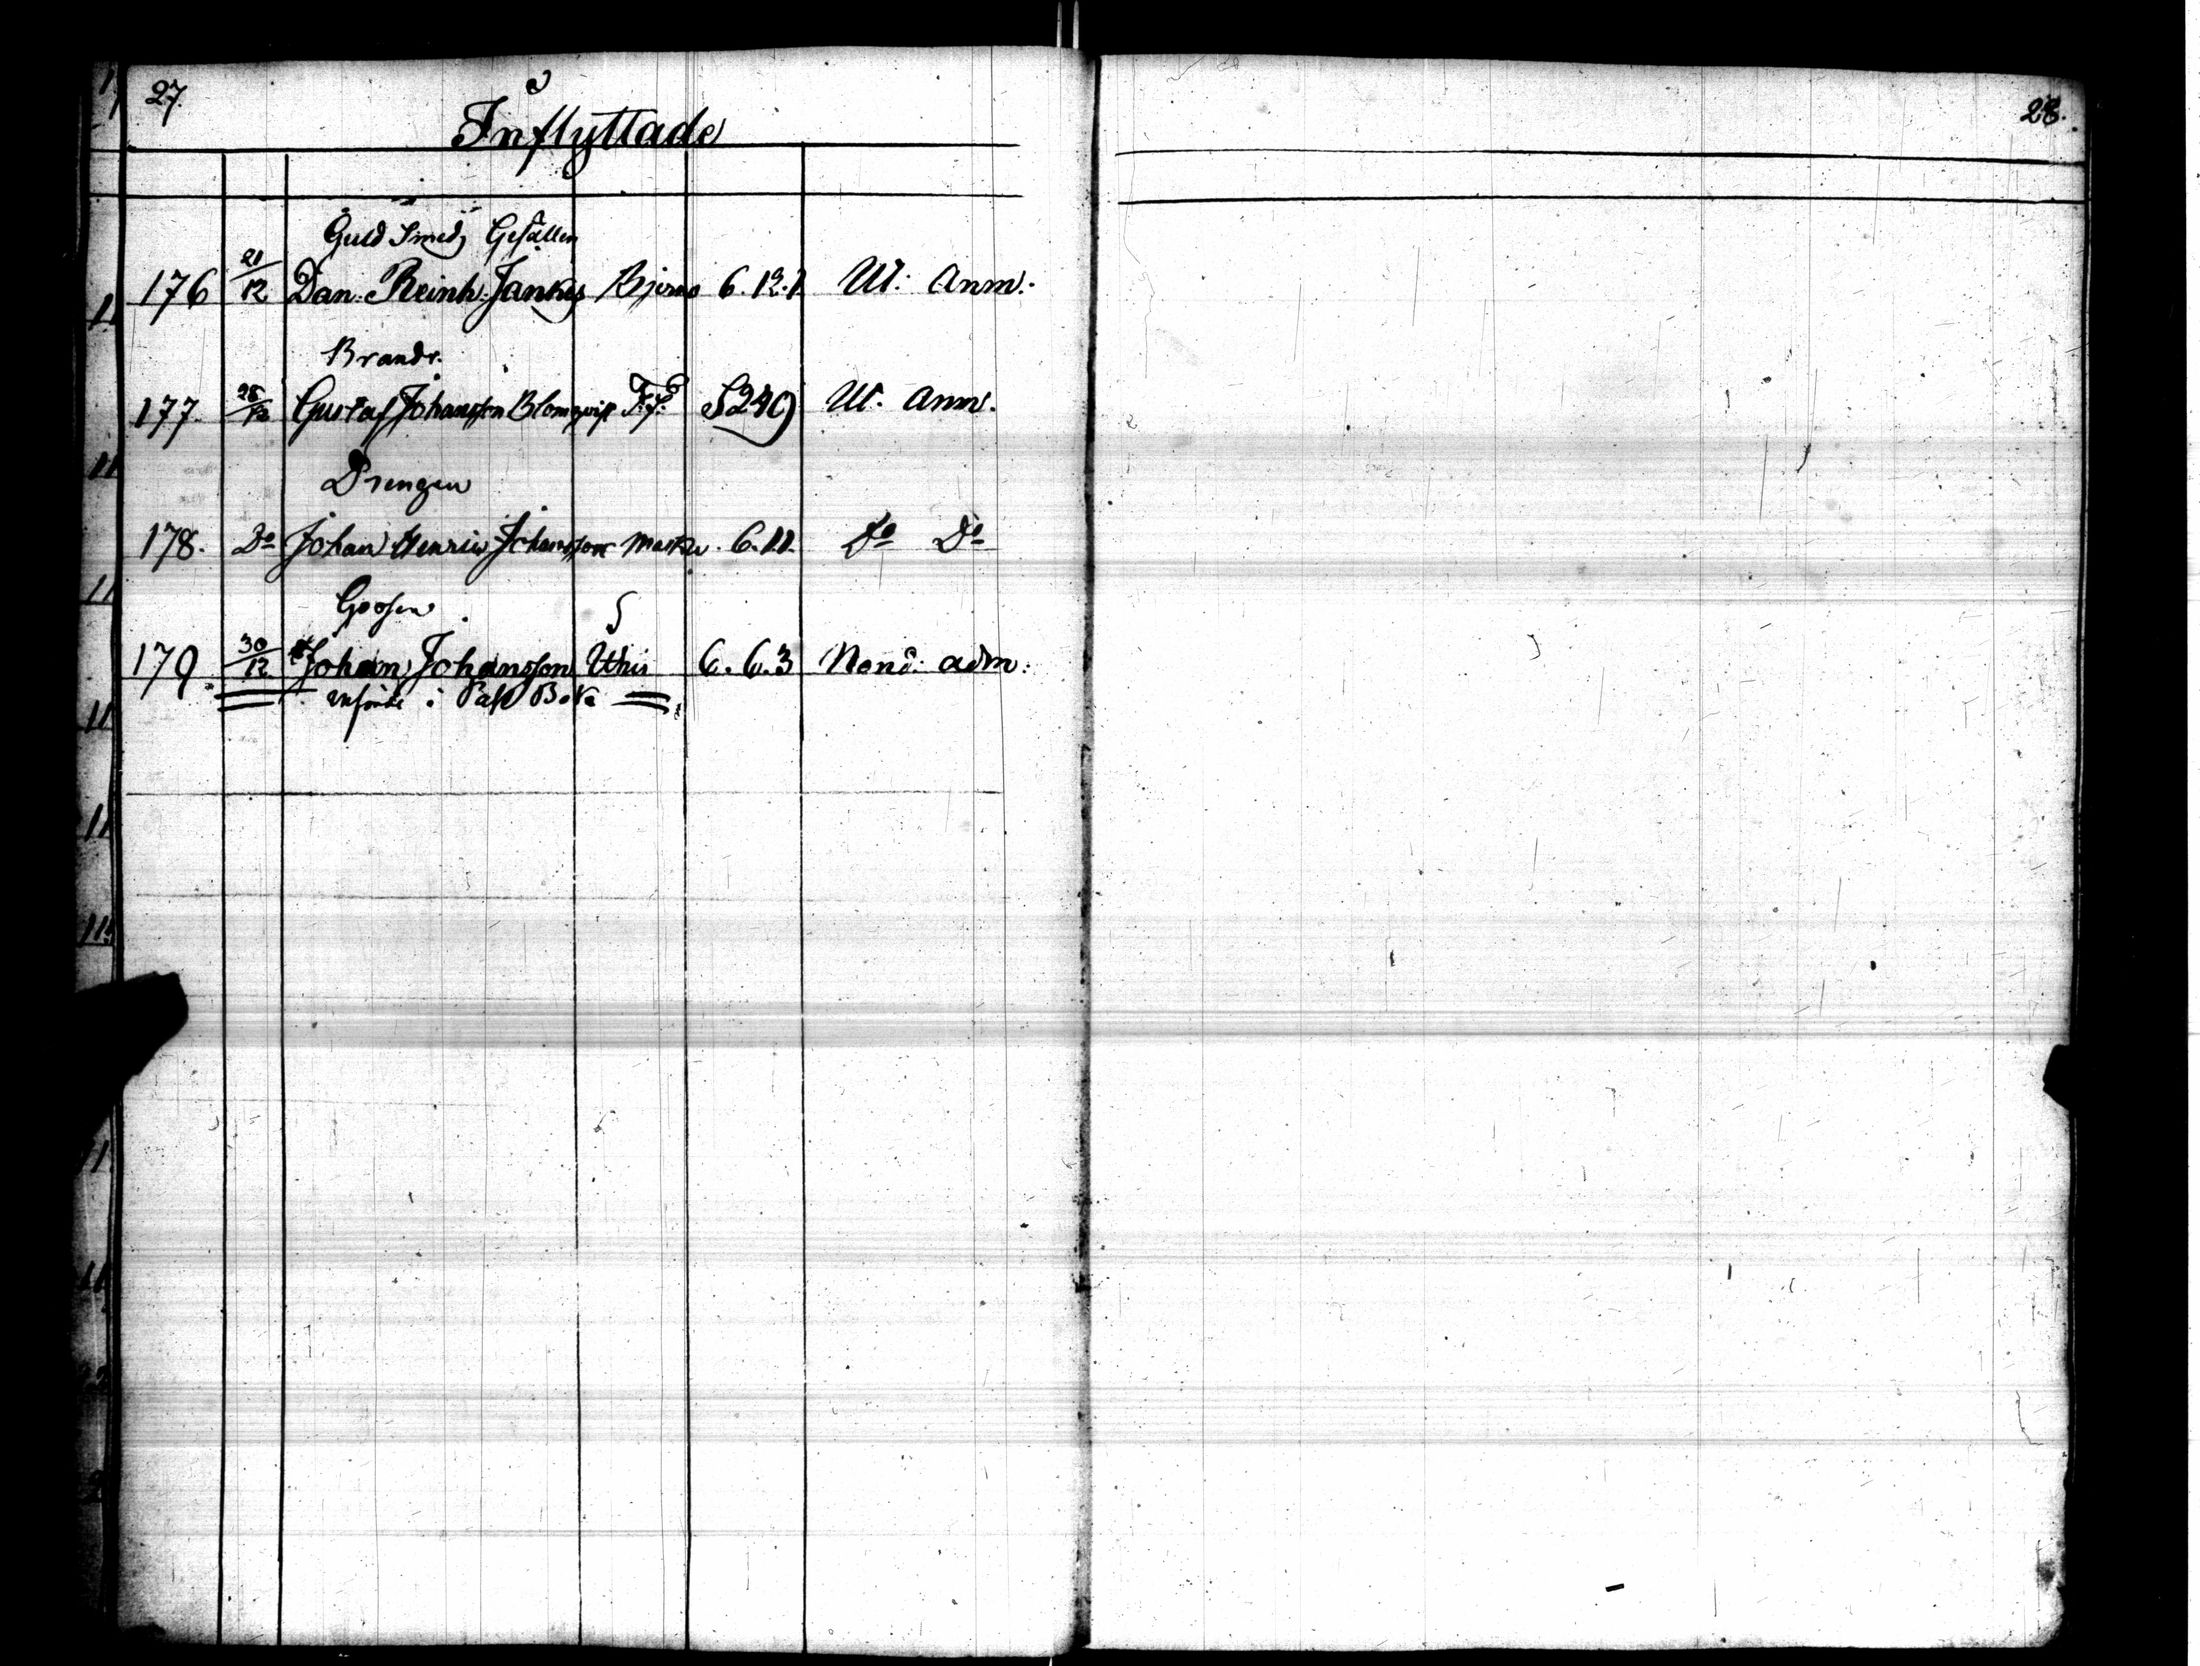 27.
Inflyttade
Guld Smeds Gesällen
176 21/12 Dan: Reinh: Jankes Bjerno 6.12.1. Ut: Anm:
Brandv.
177. 28/12 Gustaf Johansson Blomqvist S249 Ut. Anm.
Drengen
178. Do Johan Henric Johansson Masku. 6.11. Do Do
Gossen
179. 30/12 Johan Johansson 6.6.3 Nond: adm:
införde i Pass Boken
28.